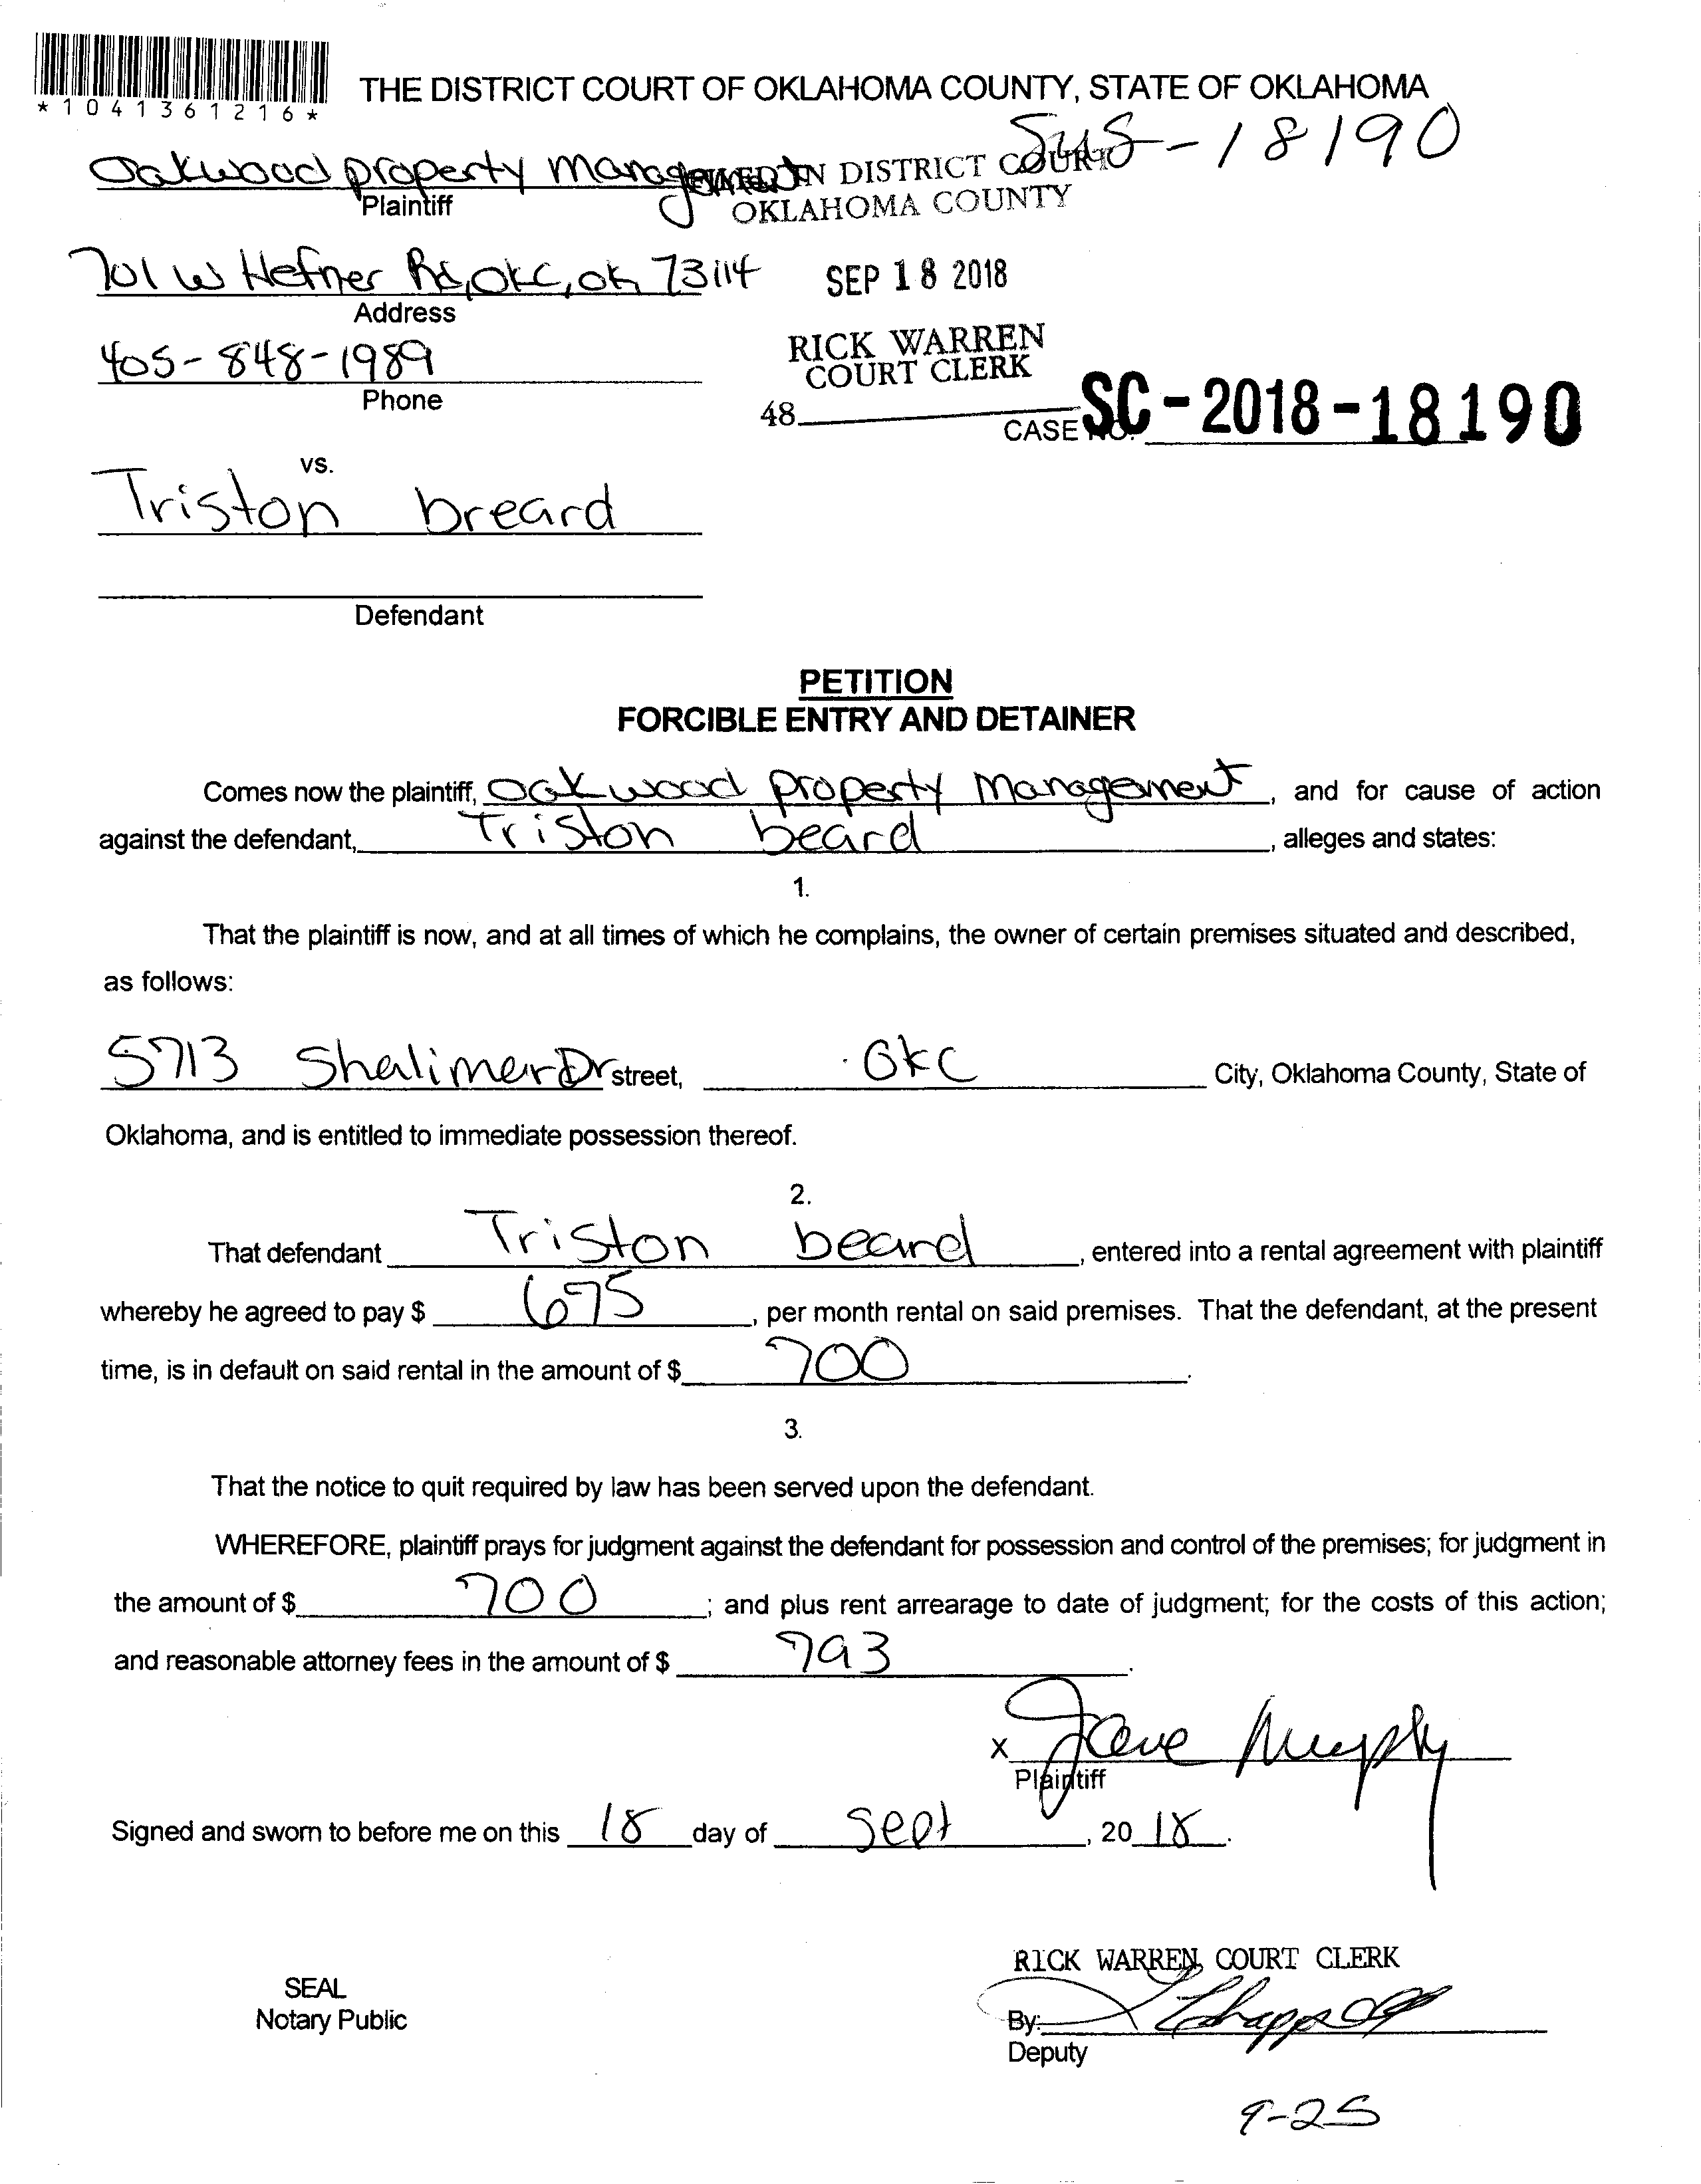 *1041361216*
THE DISTRICT COURT OF OKLAHOMA COUNTY, STATE OF OKLAHOMA
-18190
Oakwood property management
FILED IN DISTRICT COURT
Plaintiff
OKLAHOMA COUNTY
701 W Hefner Rd, OKC, OK 73114
SEP 18 2018
Address
405-848-1989
RICK WARREN
COURT CLERK
Phone
48
CASE NO. SC-2018-18190
vs.
Triston breard
Defendant
PETITION
FORCIBLE ENTRY AND DETAINER
Comes now the plaintiff, Oakwood property Management, and for cause of action
against the defendant, Triston beard, alleges and states:
1.
That the plaintiff is now, and at all times of which he complains, the owner of certain premises situated and described,
as follows:
5713 Shalimer Dr street, OKC City, Oklahoma County, State of
Oklahoma, and is entitled to immediate possession thereof.
2.
That defendant Triston beard, entered into a rental agreement with plaintiff
whereby he agreed to pay $ 675, per month rental on said premises. That the defendant, at the present
time, is in default on said rental in the amount of $ 700.
3.
That the notice to quit required by law has been served upon the defendant.
WHEREFORE, plaintiff prays for judgment against the defendant for possession and control of the premises; for judgment in
the amount of $ 700; and plus rent arrearage to date of judgment; for the costs of this action;
and reasonable attorney fees in the amount of $ 793.
X Murphy
Plaintiff
Signed and sworn to before me on this 18 day of Sept, 20 18.
RICK WARREN, COURT CLERK
SEAL
Notary Public
By:
Deputy
9-25